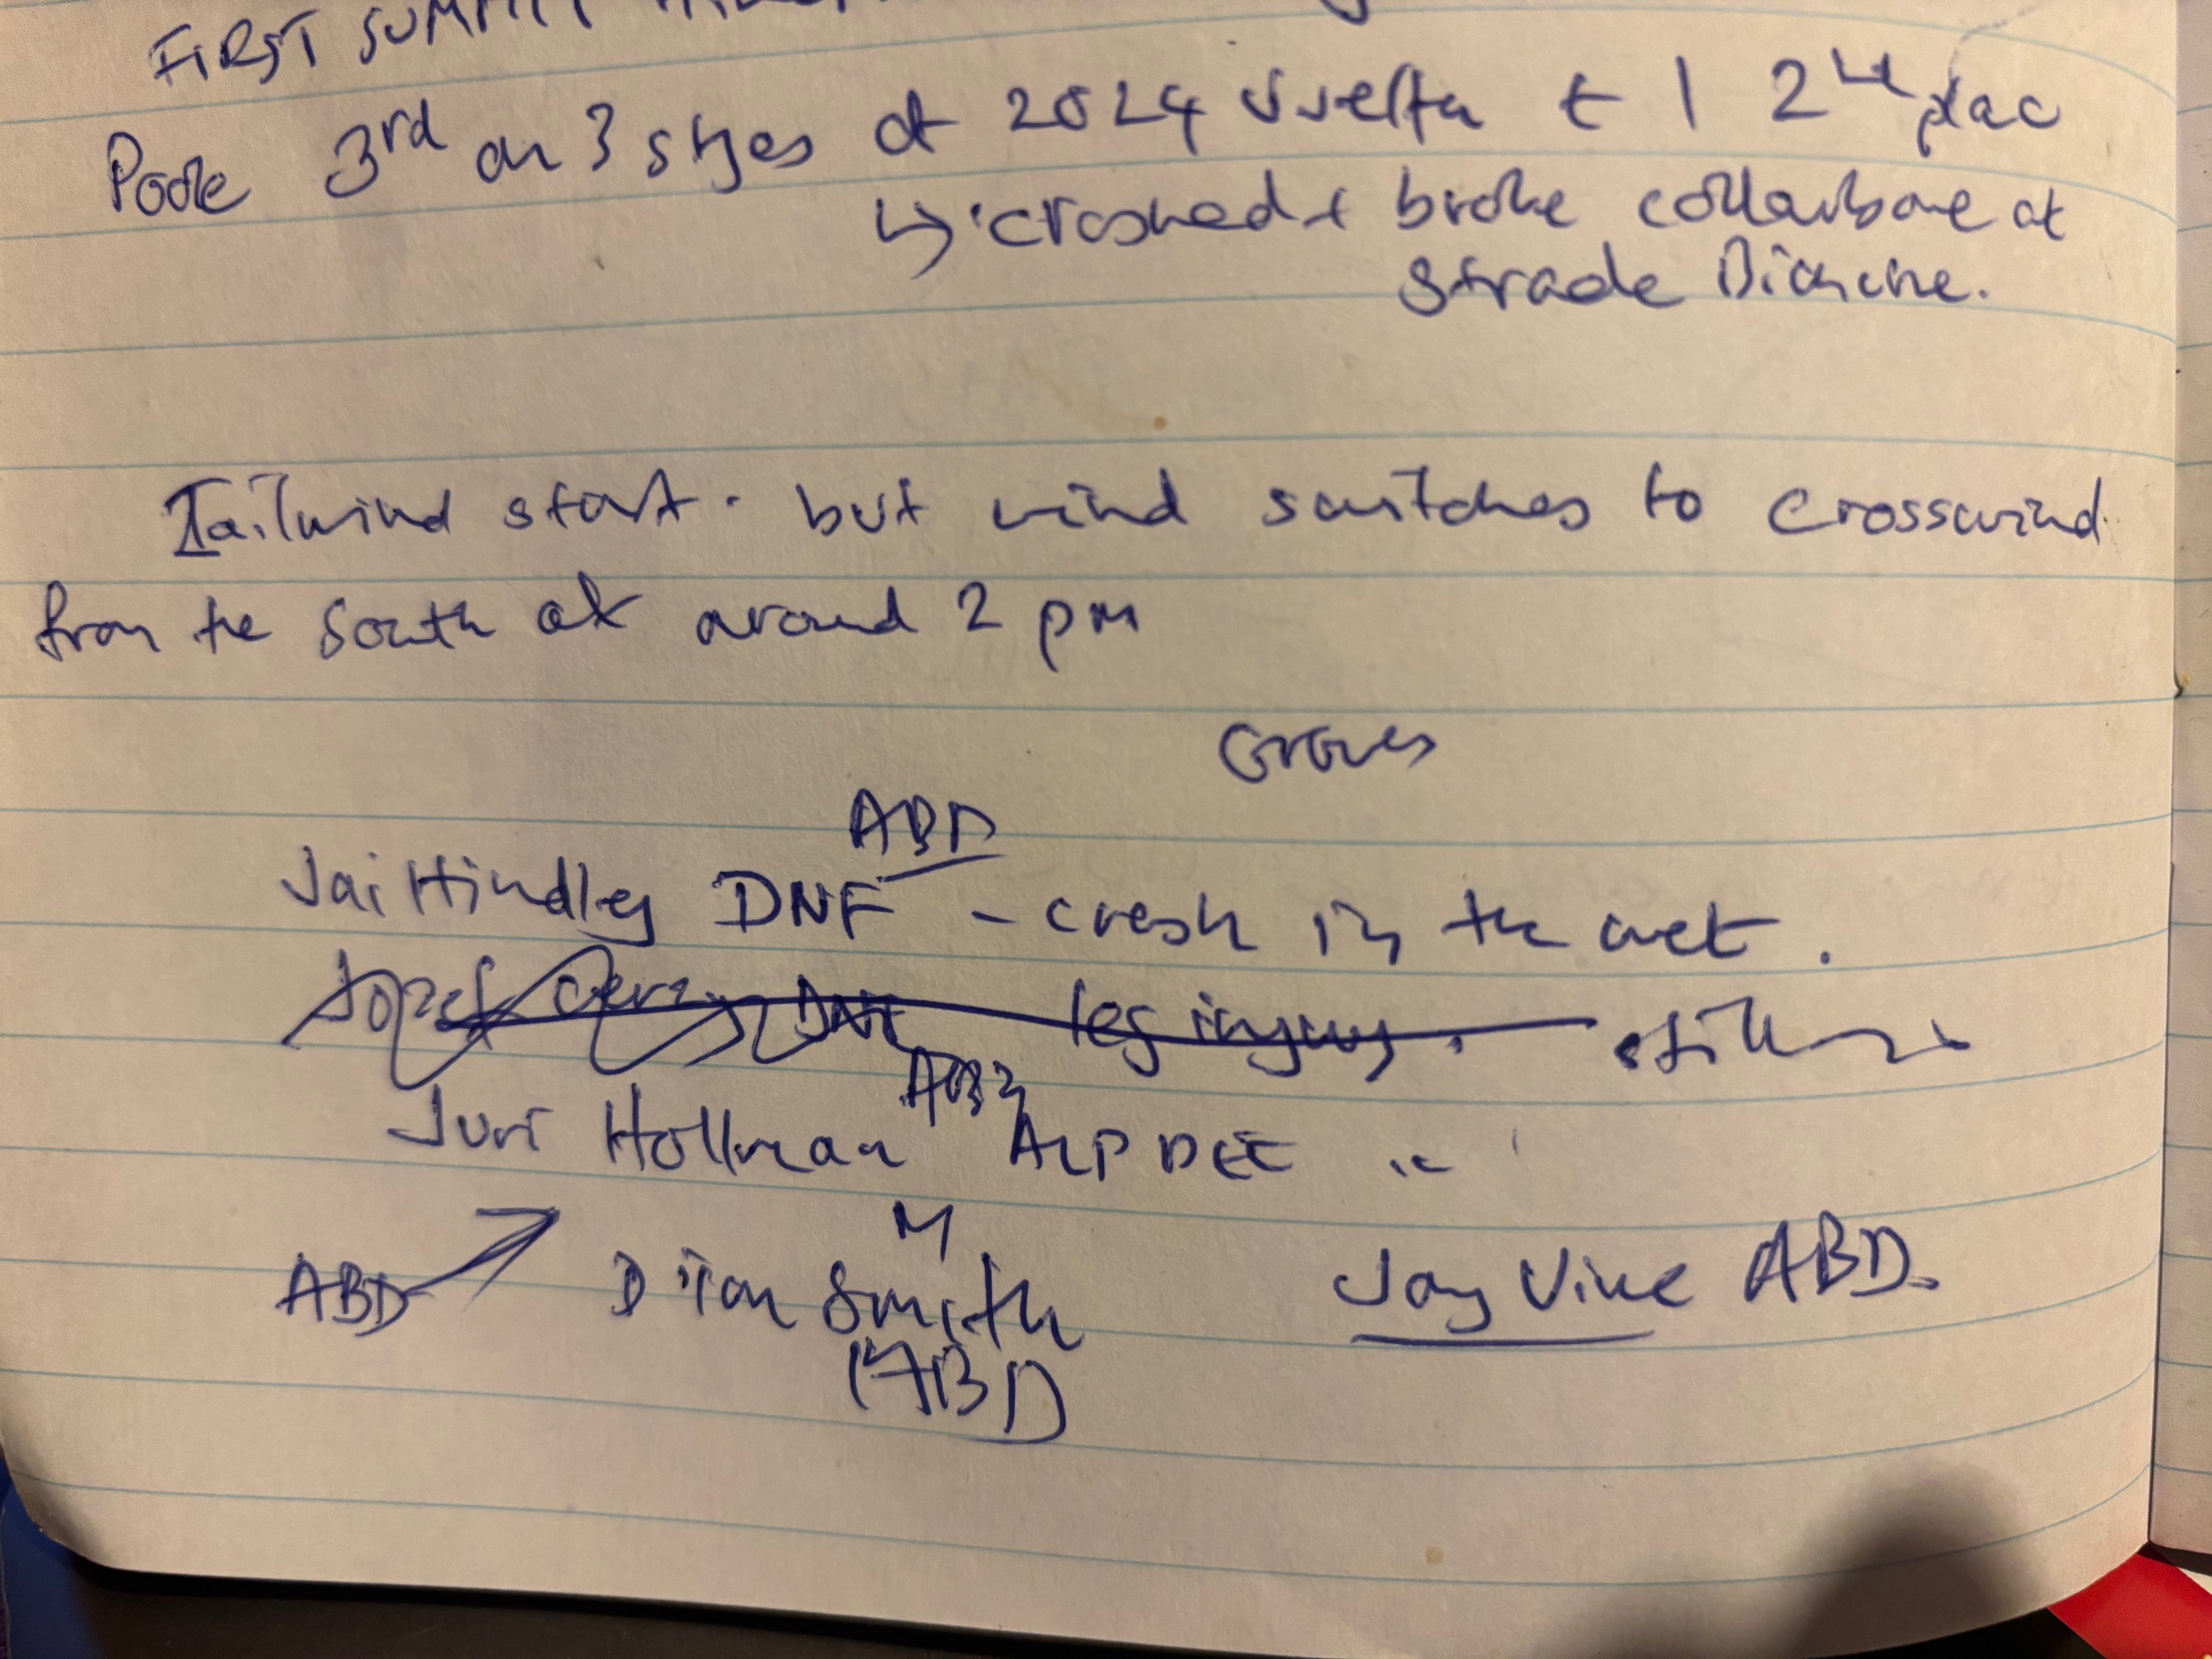 FIRST SUMMIT
Poole 3rd on 3 stges at 2024 Vuelta + 1 2nd plac
↳ crashed + broke collarbone at
Strade Bianche.
Tailwind start. but wind switches to crosswind
from the South at around 2 pm
Groves
ABD
Jai Hindley DNF - crash in the wet.
Josef Cerny DNF leg injury. still in
Juri Hollman ALP DEC "
M
ABD → Dion Smith Jay Vine ABD.
(ABD